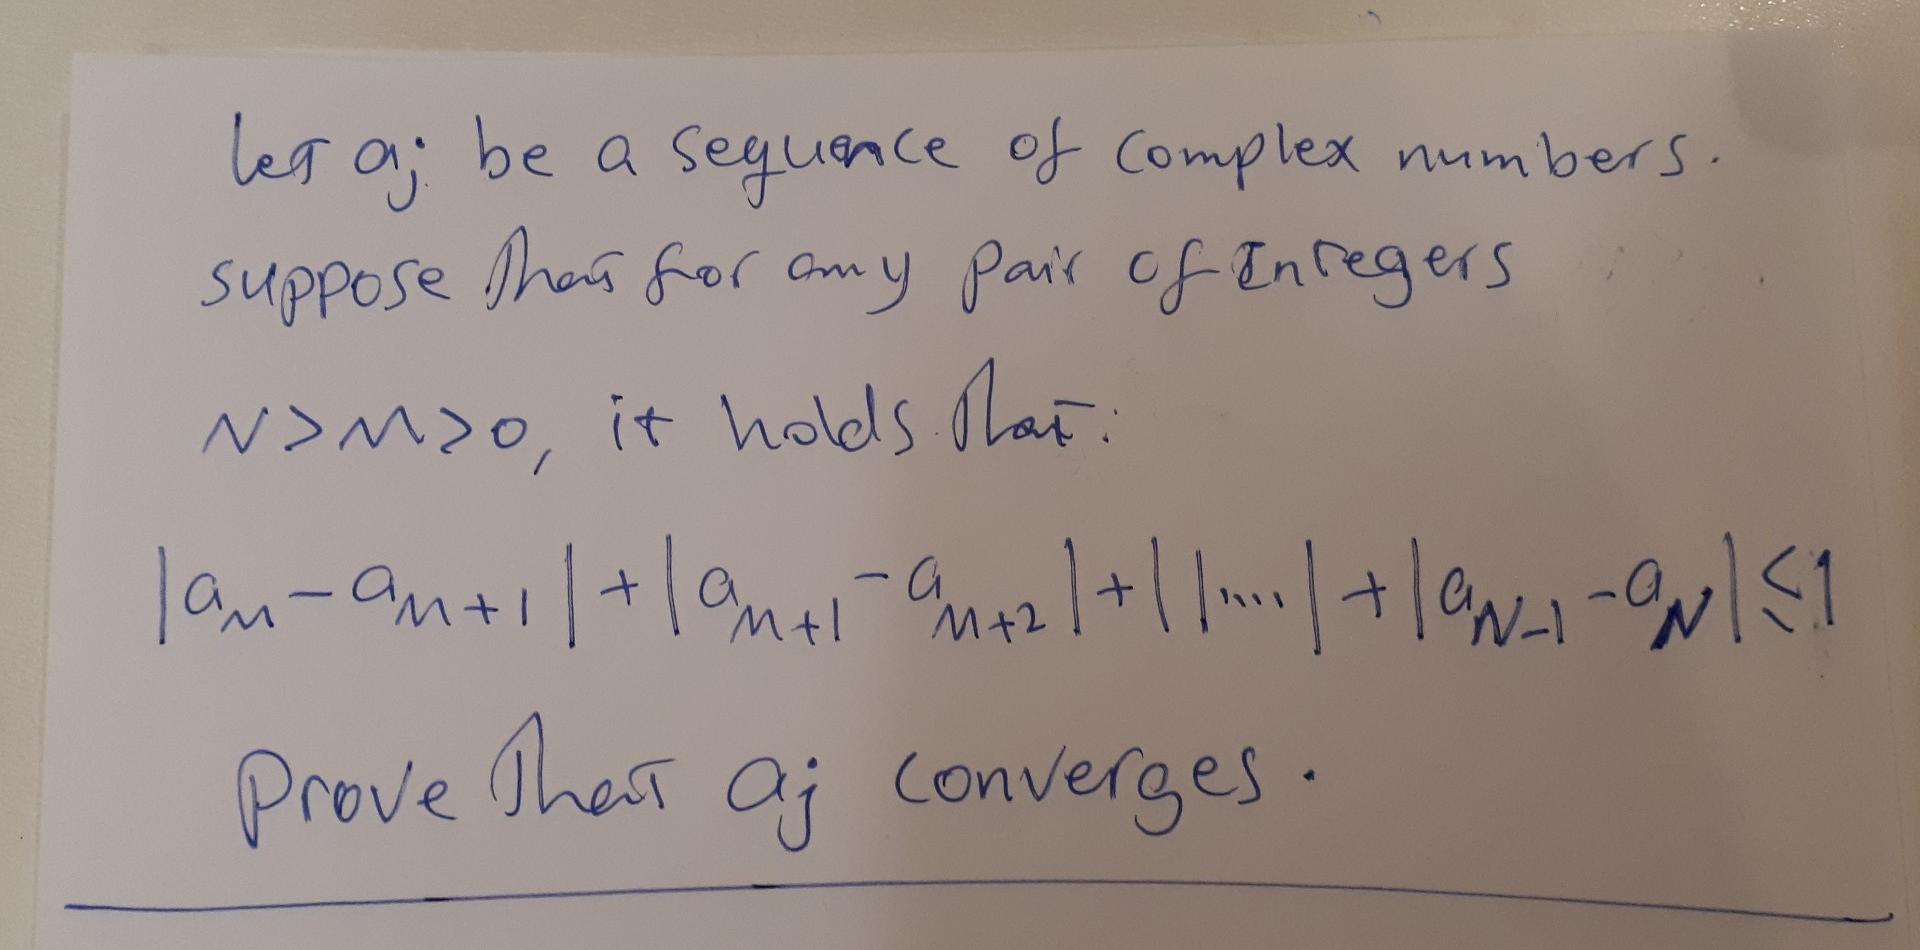 let aj be a sequence of complex numbers.
suppose that for any pair of Integers
N>M>0, it holds that:
|aM-aM+1|+|aM+1-aM+2|+||....|+|aN-1-aN|≤1
prove that aj converges.